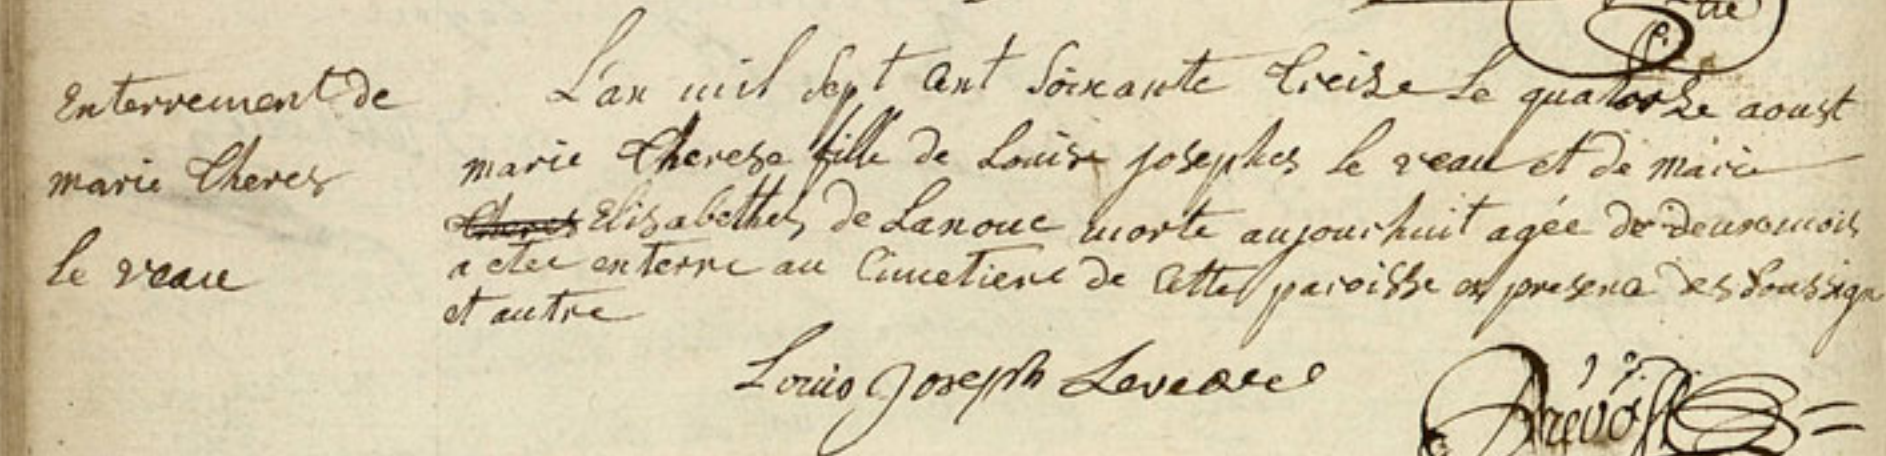 Enterrement de
marie Theres
le veau
L'an mil sept Cent soixante treize le quatorze aoust
marie Therese fille de Louise josephes le veau et de marie
Theres Elisabethes de Lanoue morte aujourhuit agée de deuxmois
a etee enterre au Cimetiere de Cette paroisse en presence des soussign
et autre
Louis Joseph Leveau
Prévost